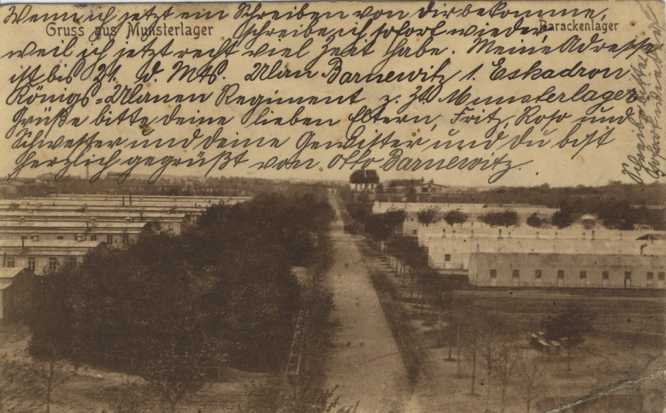 Wenn ich jetzt ein Schreiben von dir bekomme,
Gruss aus Munsterlager
schreibe ich sofort wieder
Barackenlager
weil ich jetzt recht viel Zeit habe. Meine Adresse
ist bis 31. d. Mts. Ulan Barnewitz 1. Eskadron
Königs-Ulanen Regiment z. Zt. Munsterlager
Grüße bitte deine lieben Eltern, Fritz, und
Schwester und deine und du bist
herzlich gegrüßt von Otto Barnewitz.